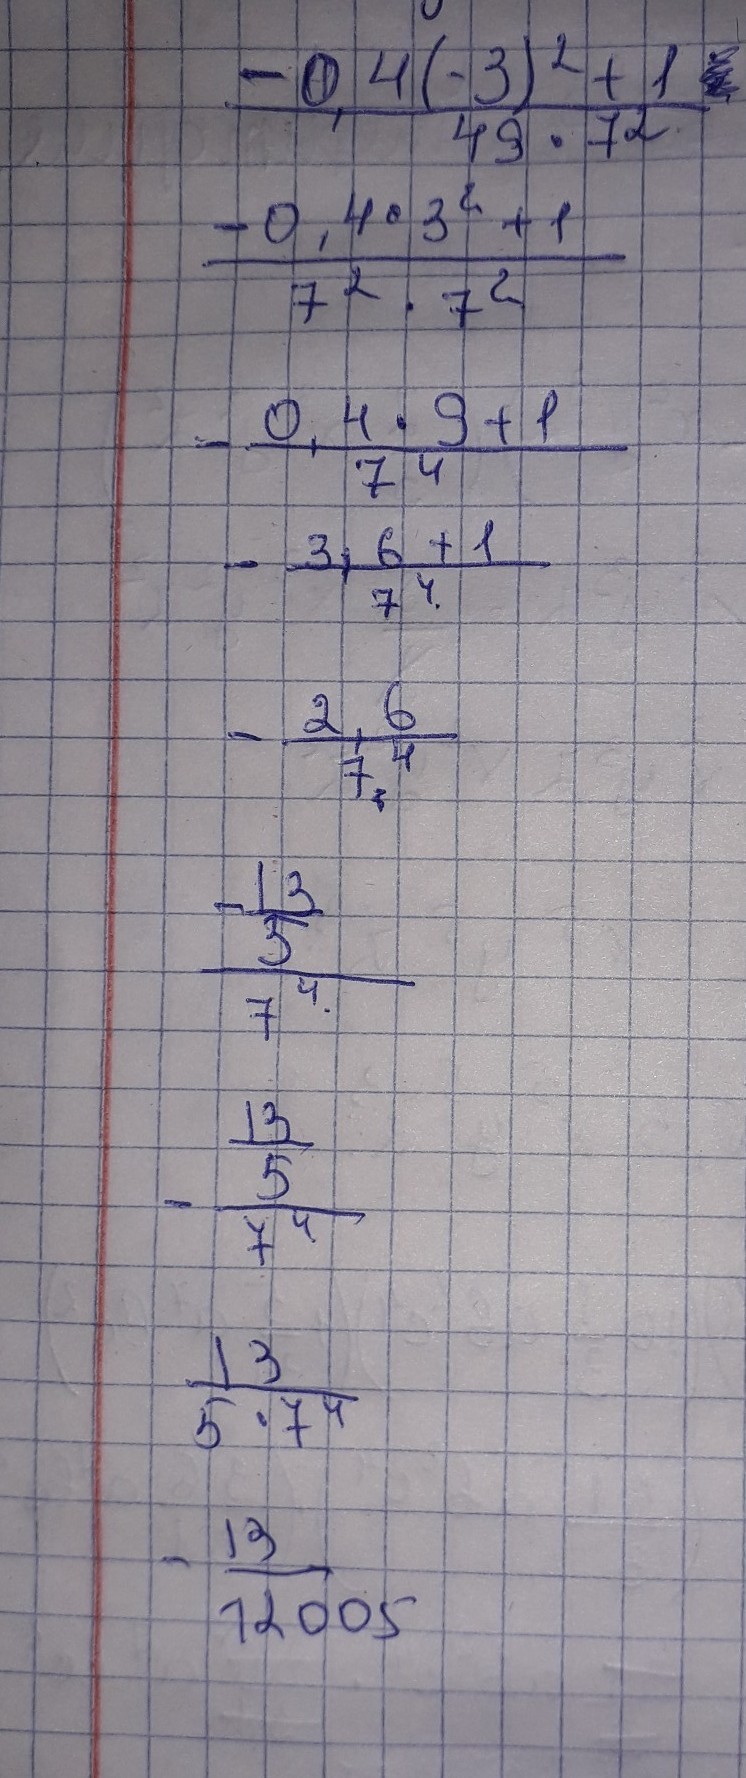 -0,4(-3)²+1
49·7²
-0,4·3²+1
7²·7²
- 0,4·9+1
7⁴
- 3,6+1
7⁴.
- 2,6
7⁴
-13
5
7⁴.
13
5
-
7⁴
13
5·7⁴
- 13
12005